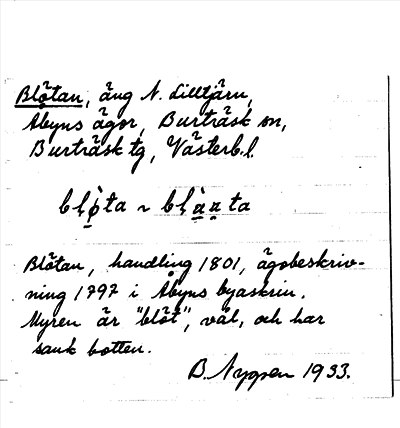 Blötan, äng N. Lillträsk,
Åbyns ägor, Burträsk sn,
Burträsk tg, Västerb.l.
blø̀ta ~ blàata
Blötan, handling 1801, ägobeskriv-
ning 1797 i Åbyns byaskrin.
Myren är "blöt", våt, och har
sank botten.
B. Nygren 1933.